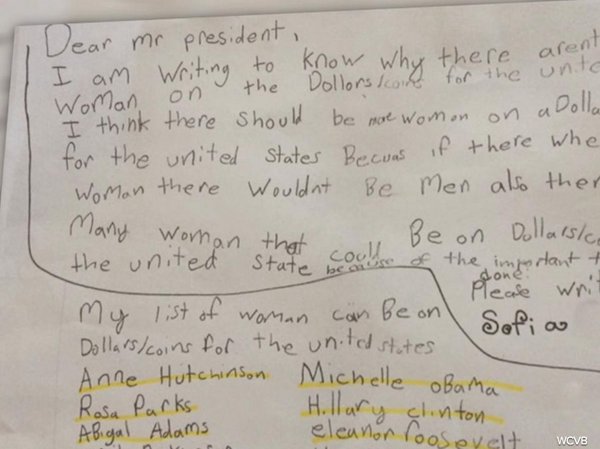 Dear mr president,
I am writing to know why there arent
woman on the Dollors/coins for the unite
I think there should be more women on a Dolla
for the united states Becuas if there whe
woman there wouldnt Be Men also ther
Many woman that could Be on Dollars/co
the united state because of the important t
done.
Please wri
Sofia
My list of woman can Be on
Dollars/coins for the united states
Anne Hutchinson Michelle oBama
Rosa Parks Hillary clinton
ABigal Adams eleanor roosevelt
WCVB